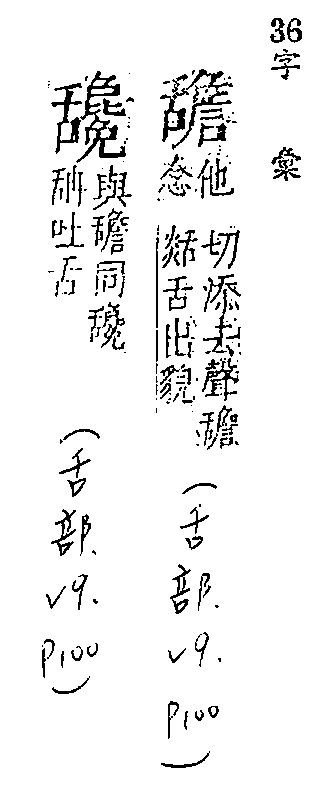 36字彙
舚
他切添去聲舚
念舌出貌
(舌部. v9. p100)
與舚同
舑吐舌
(舌部. v9. p100)